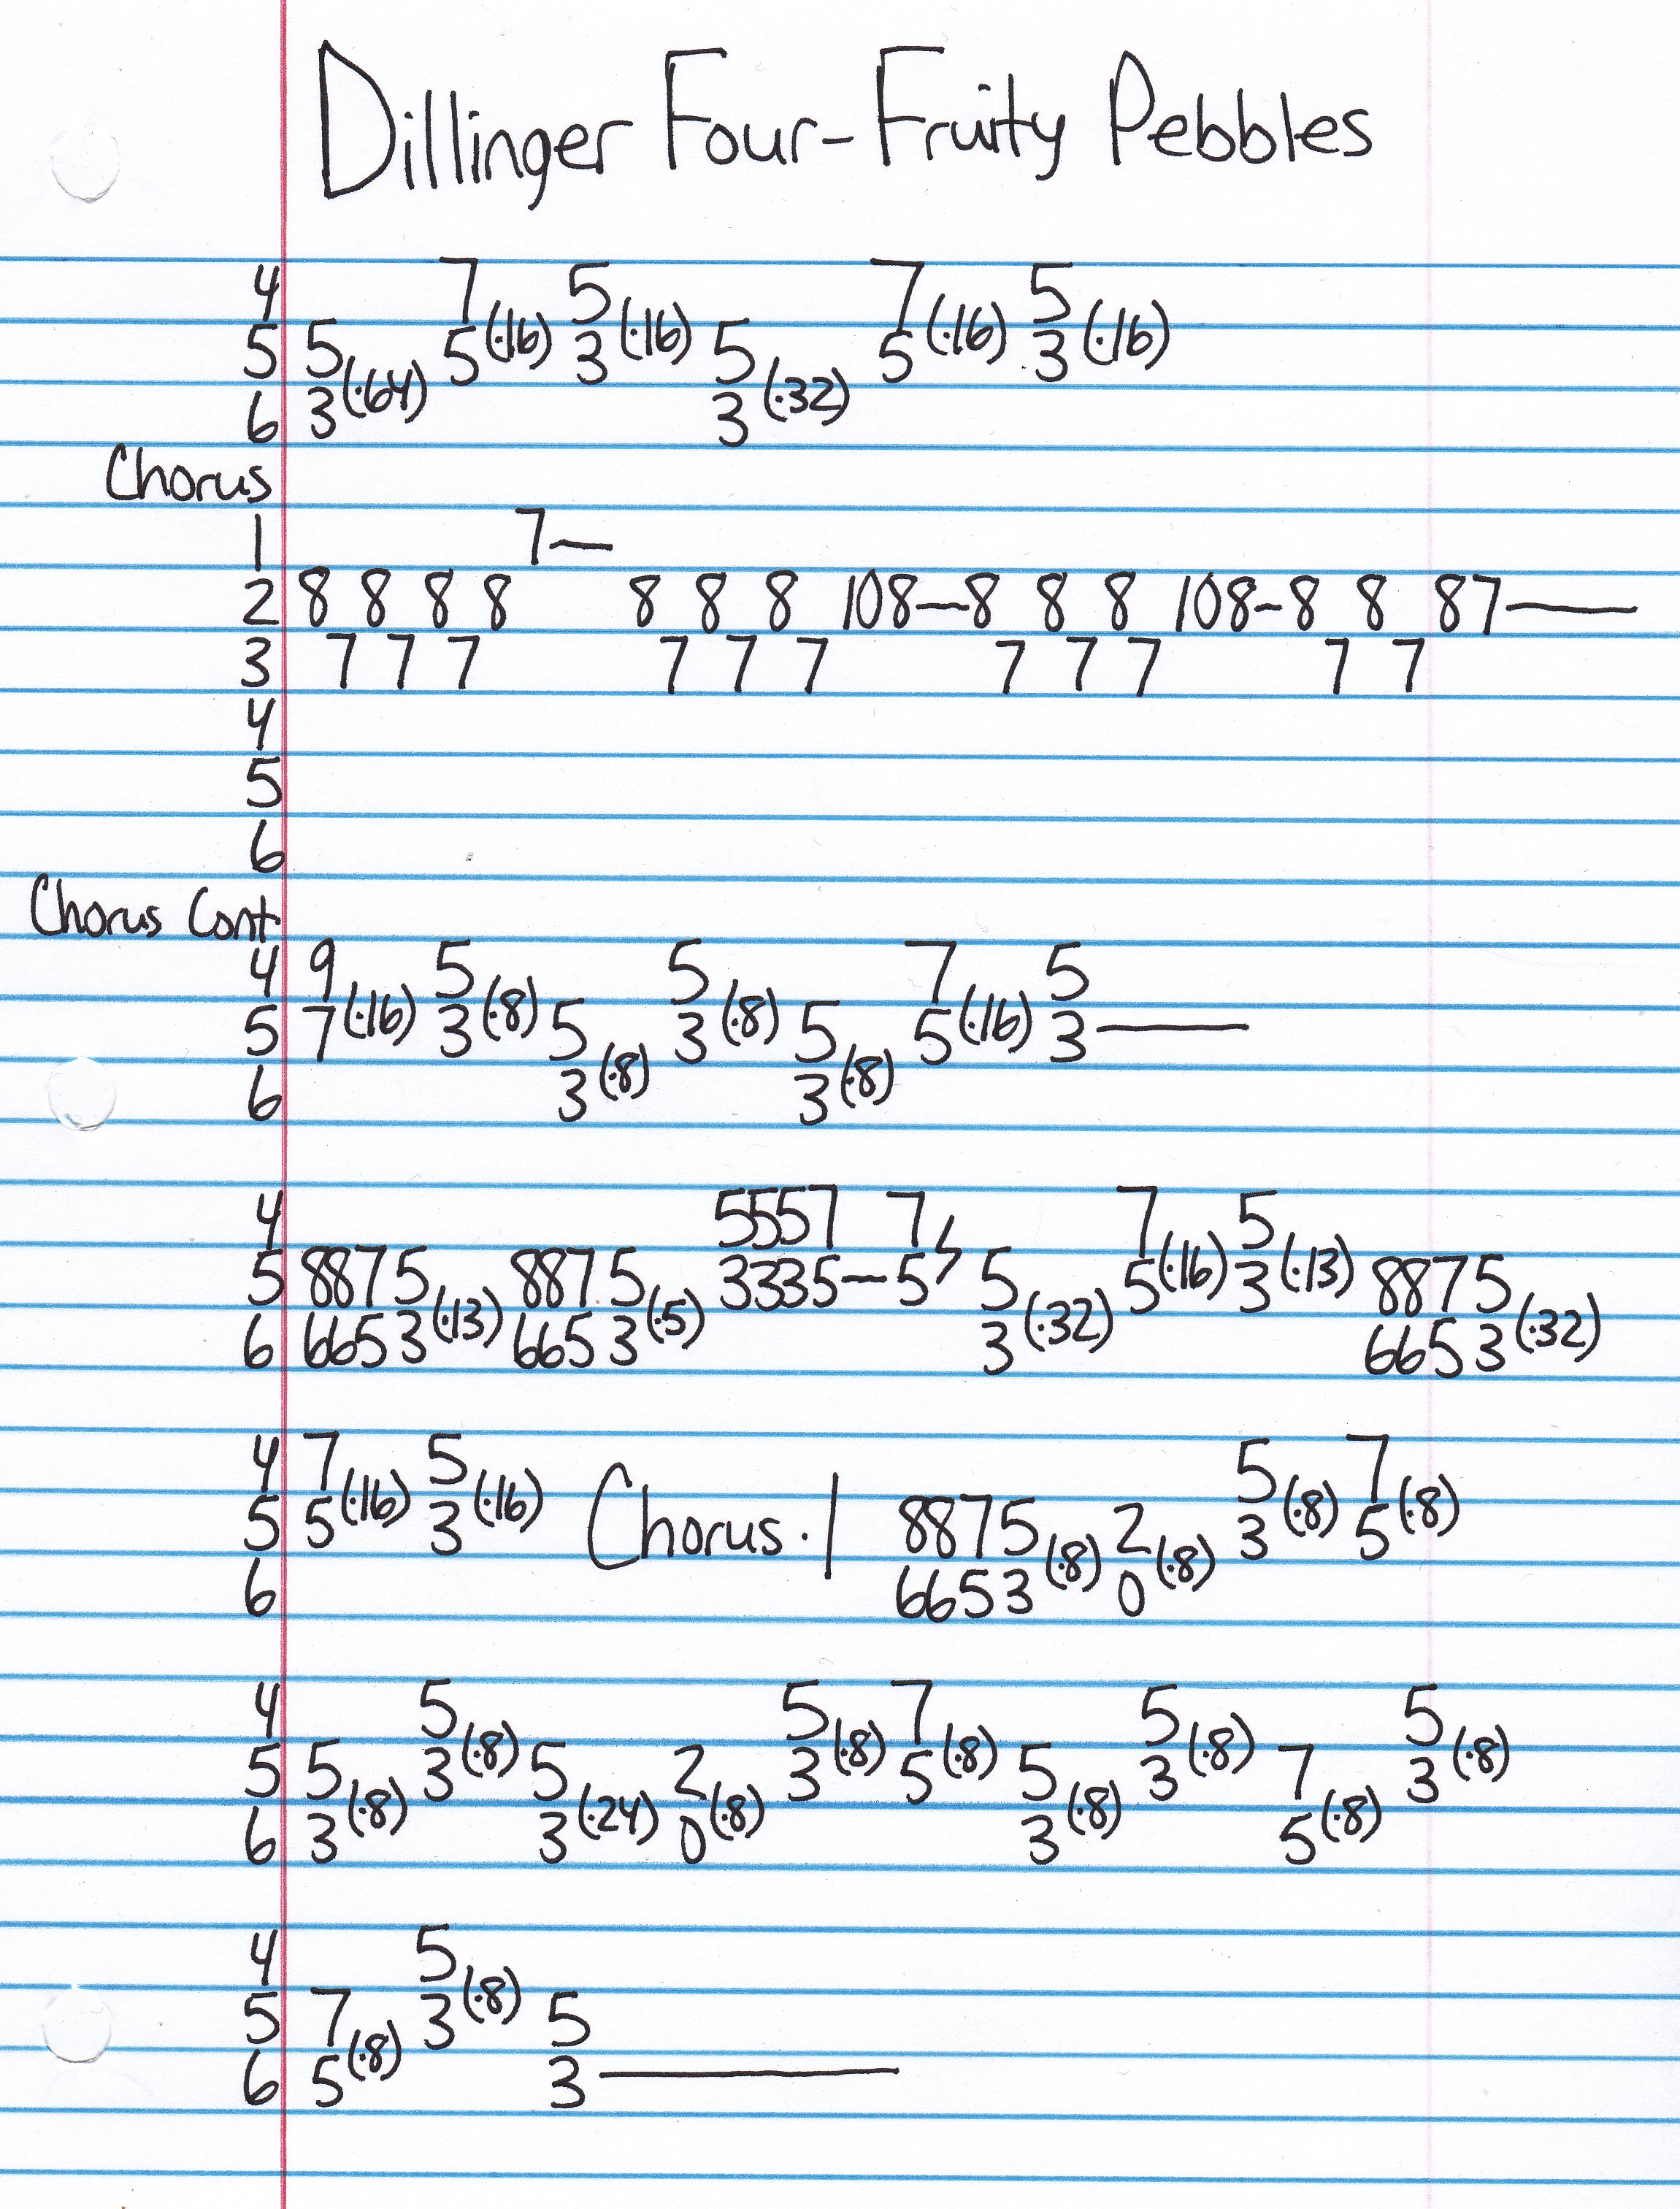 Dillinger Four-Fruity Pebbles
4 7 5 7 5
5 5 5(·16) 3(·16) 5 5(·16) 3(·16)
6 3(·64) 3(·32)
Chorus
1 7—
2 8 8 8 8 8 8 8 108—8 8 8 108-8 8 87——
3 7 7 7 7 7 7 7 7 7 7 7
4
5
6
Chorus Cont.
4 9 5 5 7 5
5 7(·16) 3(·8) 5 3(·8) 5 5(·16) 3——
6 3(·8) 3(·8)
4 5557 7 7 5
5 8875 8875 3335—5 5 5(·16) 3(·13) 8875
6 6653(·13) 6653(·5) 3(·32) 6653(·32)
4 7 5 5 7
5 5(·16) 3(·16) Chorus.| 8875 2 3(·8) 5(·8)
6 6653(·8) 0(·8)
4 5 5 7 5 5
5 5 3(·8) 5 2 3(·8) 5(·8) 5 3(·8) 7 3(·8)
6 3(·8) 3(·24) 0(·8) 3(·8) 5(·8)
4 5
5 7 3(·8) 5
6 5(·8) 3————